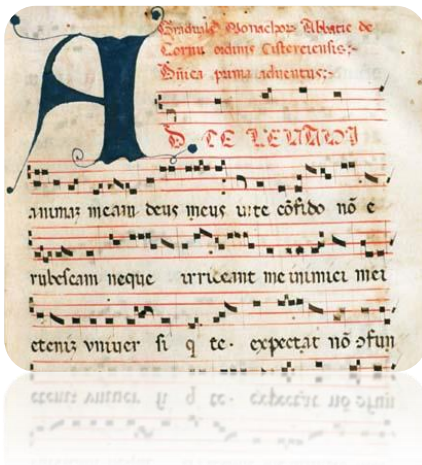 Graduale Monachorum Abbatie de
Cornu ordinis Cisterciensis:-
Dñica prima adventus:-
AD TE LEVAVI
animaz meam deus meus in te cõfido nõ e
rubescam neque irrideant me inimici mei
eteniz univer si q te · expectãt nõ ɔfun